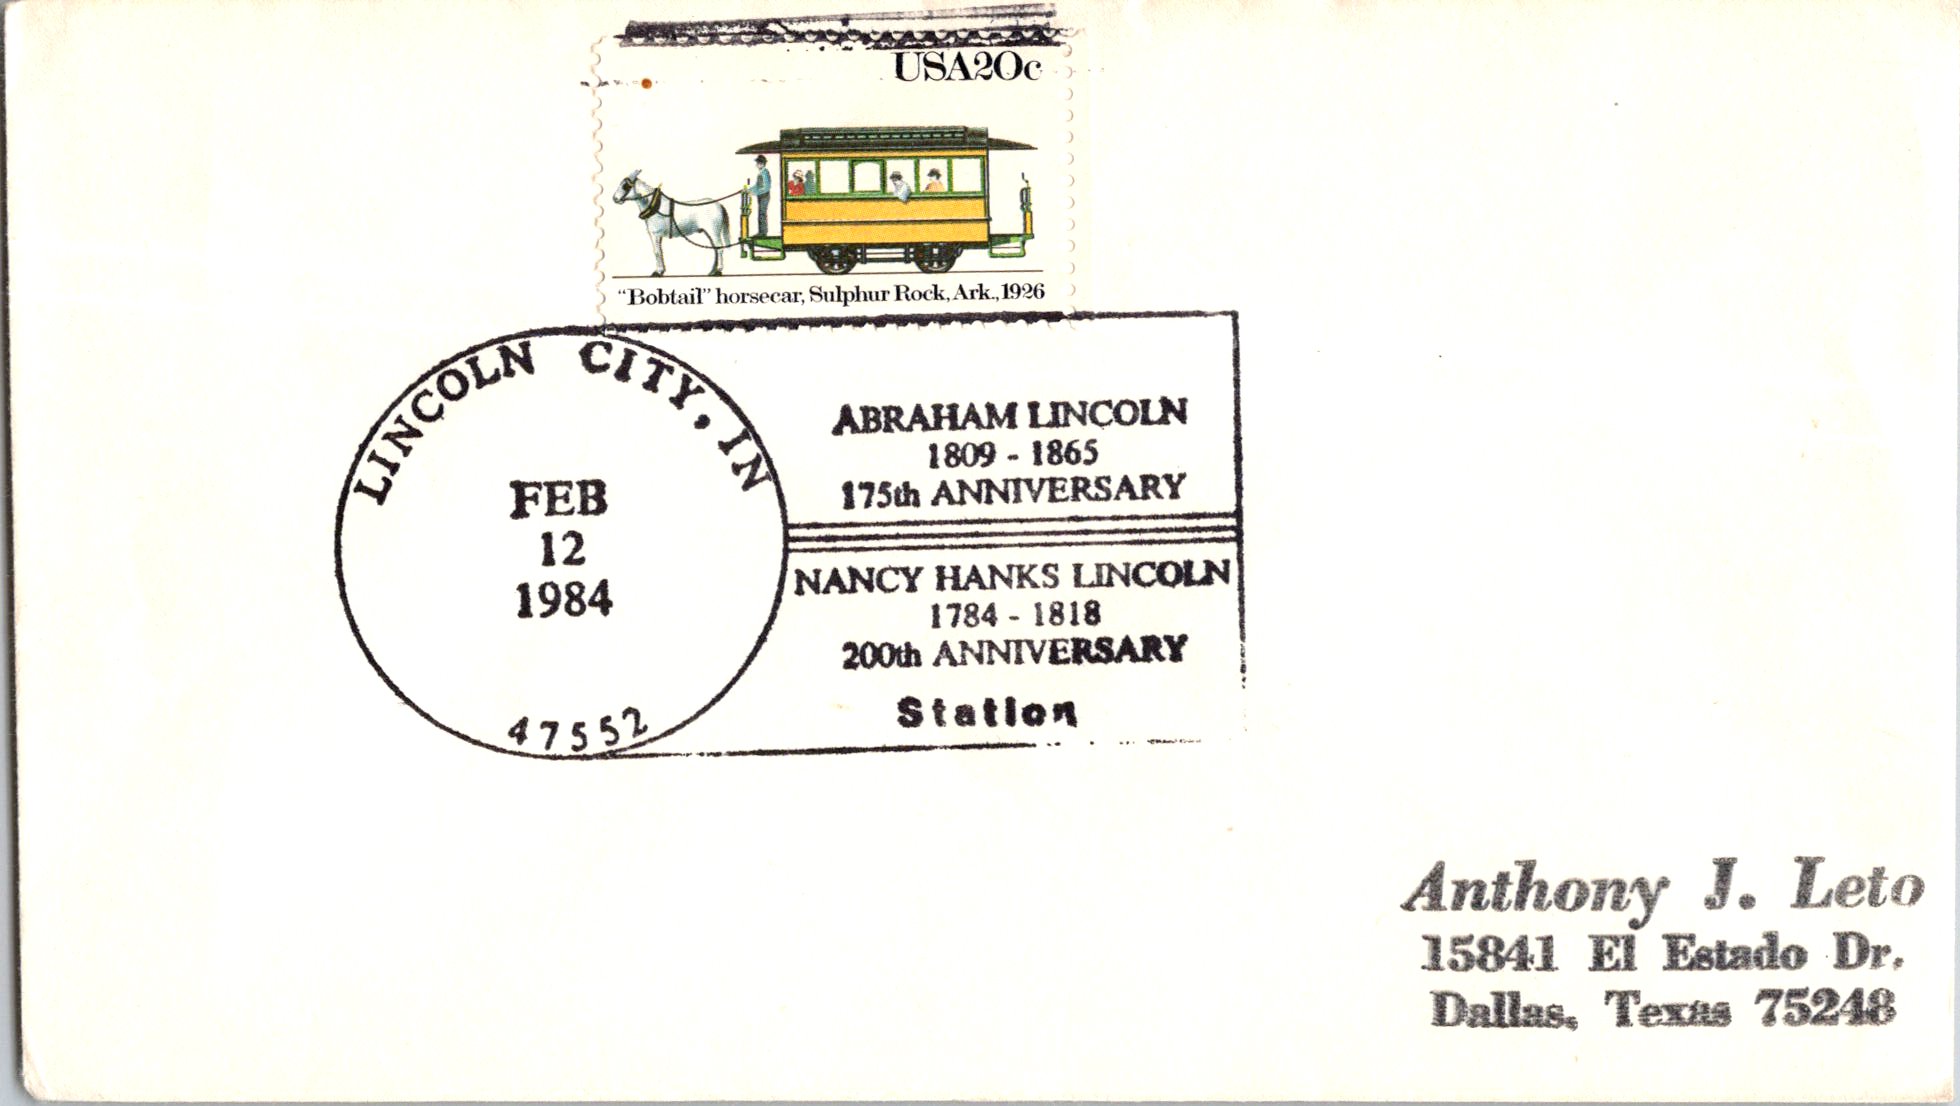 USA20c
"Bobtail" horsecar, Sulphur Rock, Ark., 1926
LINCOLN CITY, IN
FEB
12
1984
47552
ABRAHAM LINCOLN
1809 - 1865
175th ANNIVERSARY
NANCY HANKS LINCOLN
1784 - 1818
200th ANNIVERSARY
Station
Anthony J. Leto
15841 El Estado Dr.
Dallas, Texas 75248